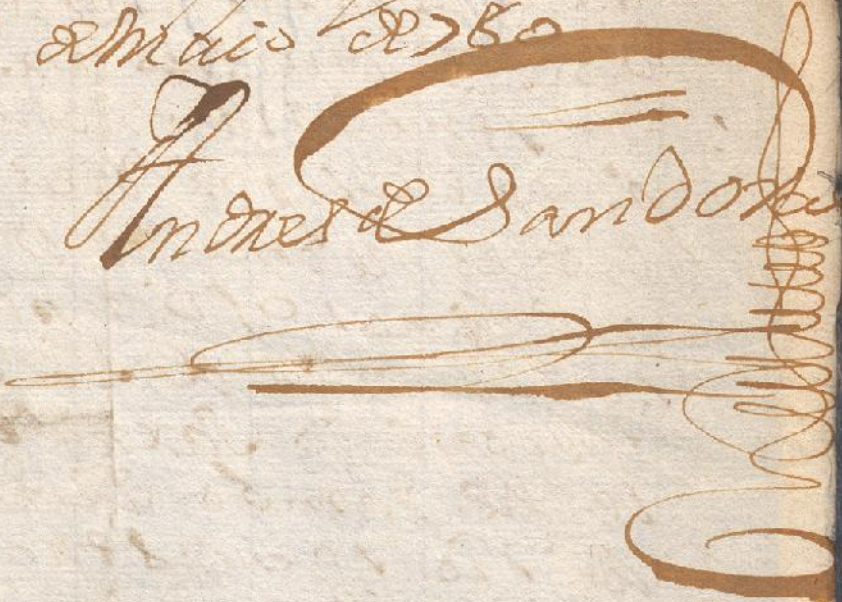 de Maio de 780
Andres de Sandoval